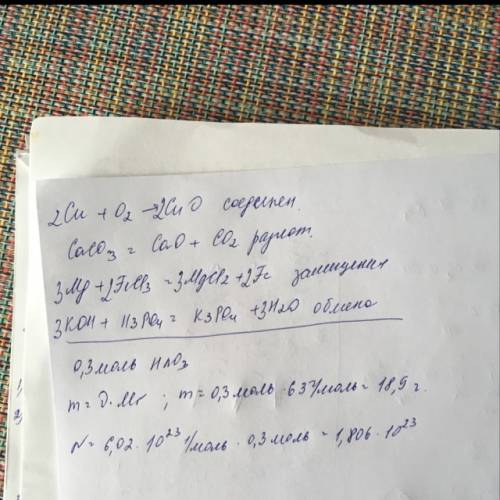 2Cu + O2 → 2CuO соединен.
CaCO3 = CaO + CO2 разлож.
3Mg + 2FeCl3 = 3MgCl2 + 2Fe замещения
3KOH + H3PO4 = K3PO4 + 3H2O обмена
0,3 моль HNO3
m = ν · Mr ; m = 0,3 моль · 63 г/моль = 18,9 г.
N = 6,02 · 10²³ 1/моль · 0,3 моль = 1,806 · 10²³